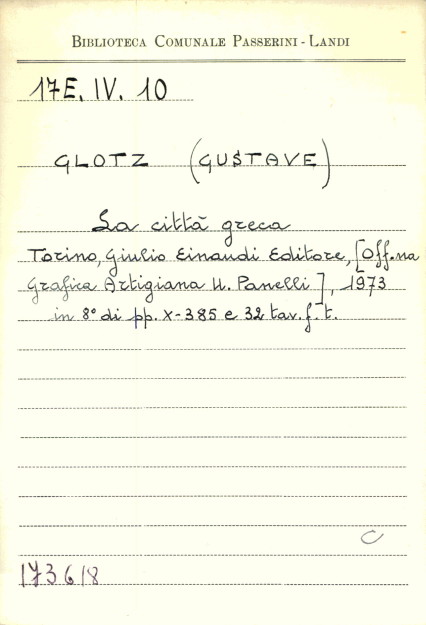 BIBLIOTECA COMUNALE PASSERINI-LANDI
17E. IV. 10
GLOTZ (GUSTAVE)
La città greca
Torino, Giulio Einaudi Editore, [Off.na
Grafica Artigiana U. Panelli], 1973
in 8° di pp. X-385 e 32 tav. f. t.
C
173618